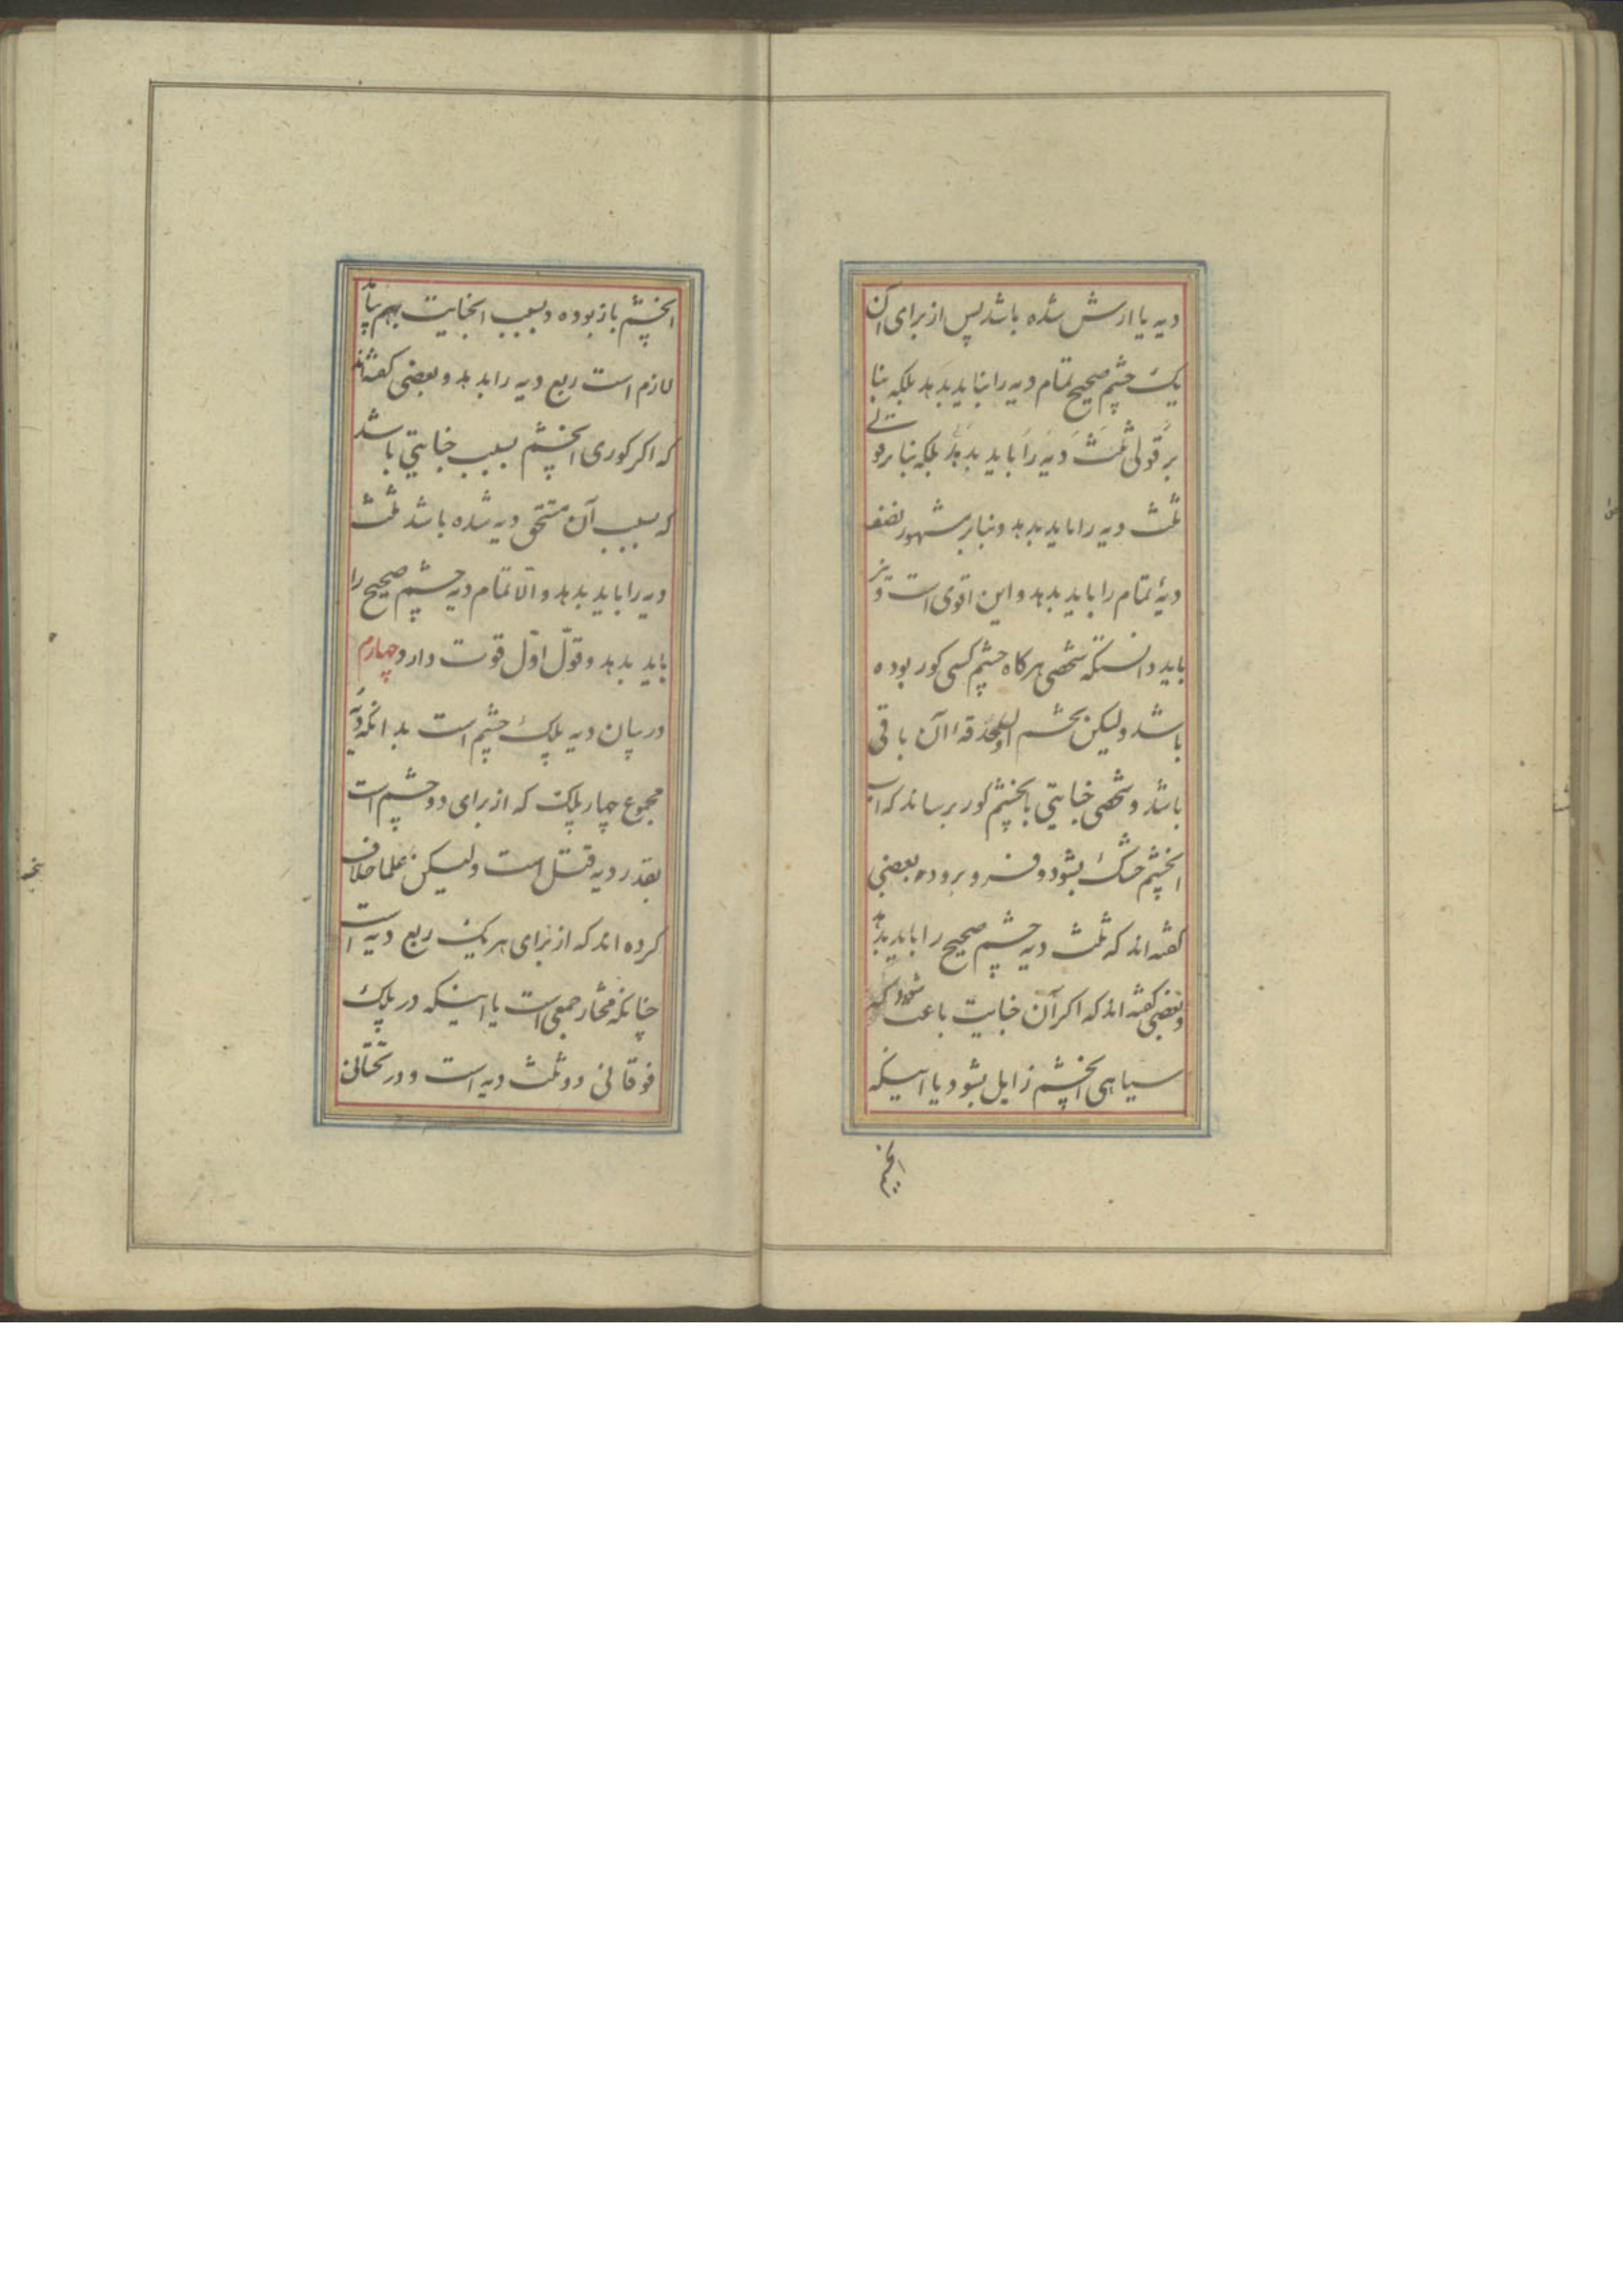 دیه یا ارش شده باشد پس از برای آن
یک چشم صحیح تمام دیه را نباید بدهد بلکه بنا
بر قولی ثلث دیه را باید بدهد بلکه بنا بر قولی
ثلث دیه را باید بدهد و بنا بر مشهور نصف
دیهٔ تمام را باید بدهد و این اقوی است و نیز
باید دانستکه شخصی هرکاه چشم کسی کور بوده
باشد ولیکن حدقهٔ آن باقی
باشد و شخصی جنایتی بانچشم کور برساند که
انچشم خشک بشود و فرو برود بعضی
کفته اند که ثلث دیه چشم صحیح را باید بدهد
و بعضی کفته اند که اکر آن جنایت باعث شود که
سیاهی انچشم زایل بشود یا اینکه
انچشم
انچشم باز بوده و بسبب انجنایت بهم بیاید
لازم است ربع دیه را بدهد و بعضی کفته‌اند
که اکر کوری انچشم بسبب جنایتی باشد
که بسبب آن مستحق دیه شده باشد ثلث
دیه را باید بدهد و الّا تمام دیه چشم صحیح را
باید بدهد و قول اوّل قوت دارد چهارم
در بیان دیه پلک چشم است بدانکه دیه
مجموع چهار پلک که از برای دو چشم است
بقدر دیه قتل است ولیکن علما خلاف
کرده اند که از برای هر یک ربع دیه است
چنانکه مختار جمعی است یا اینکه در پلک
فوقانی دو ثلث دیه است و در تحتانی